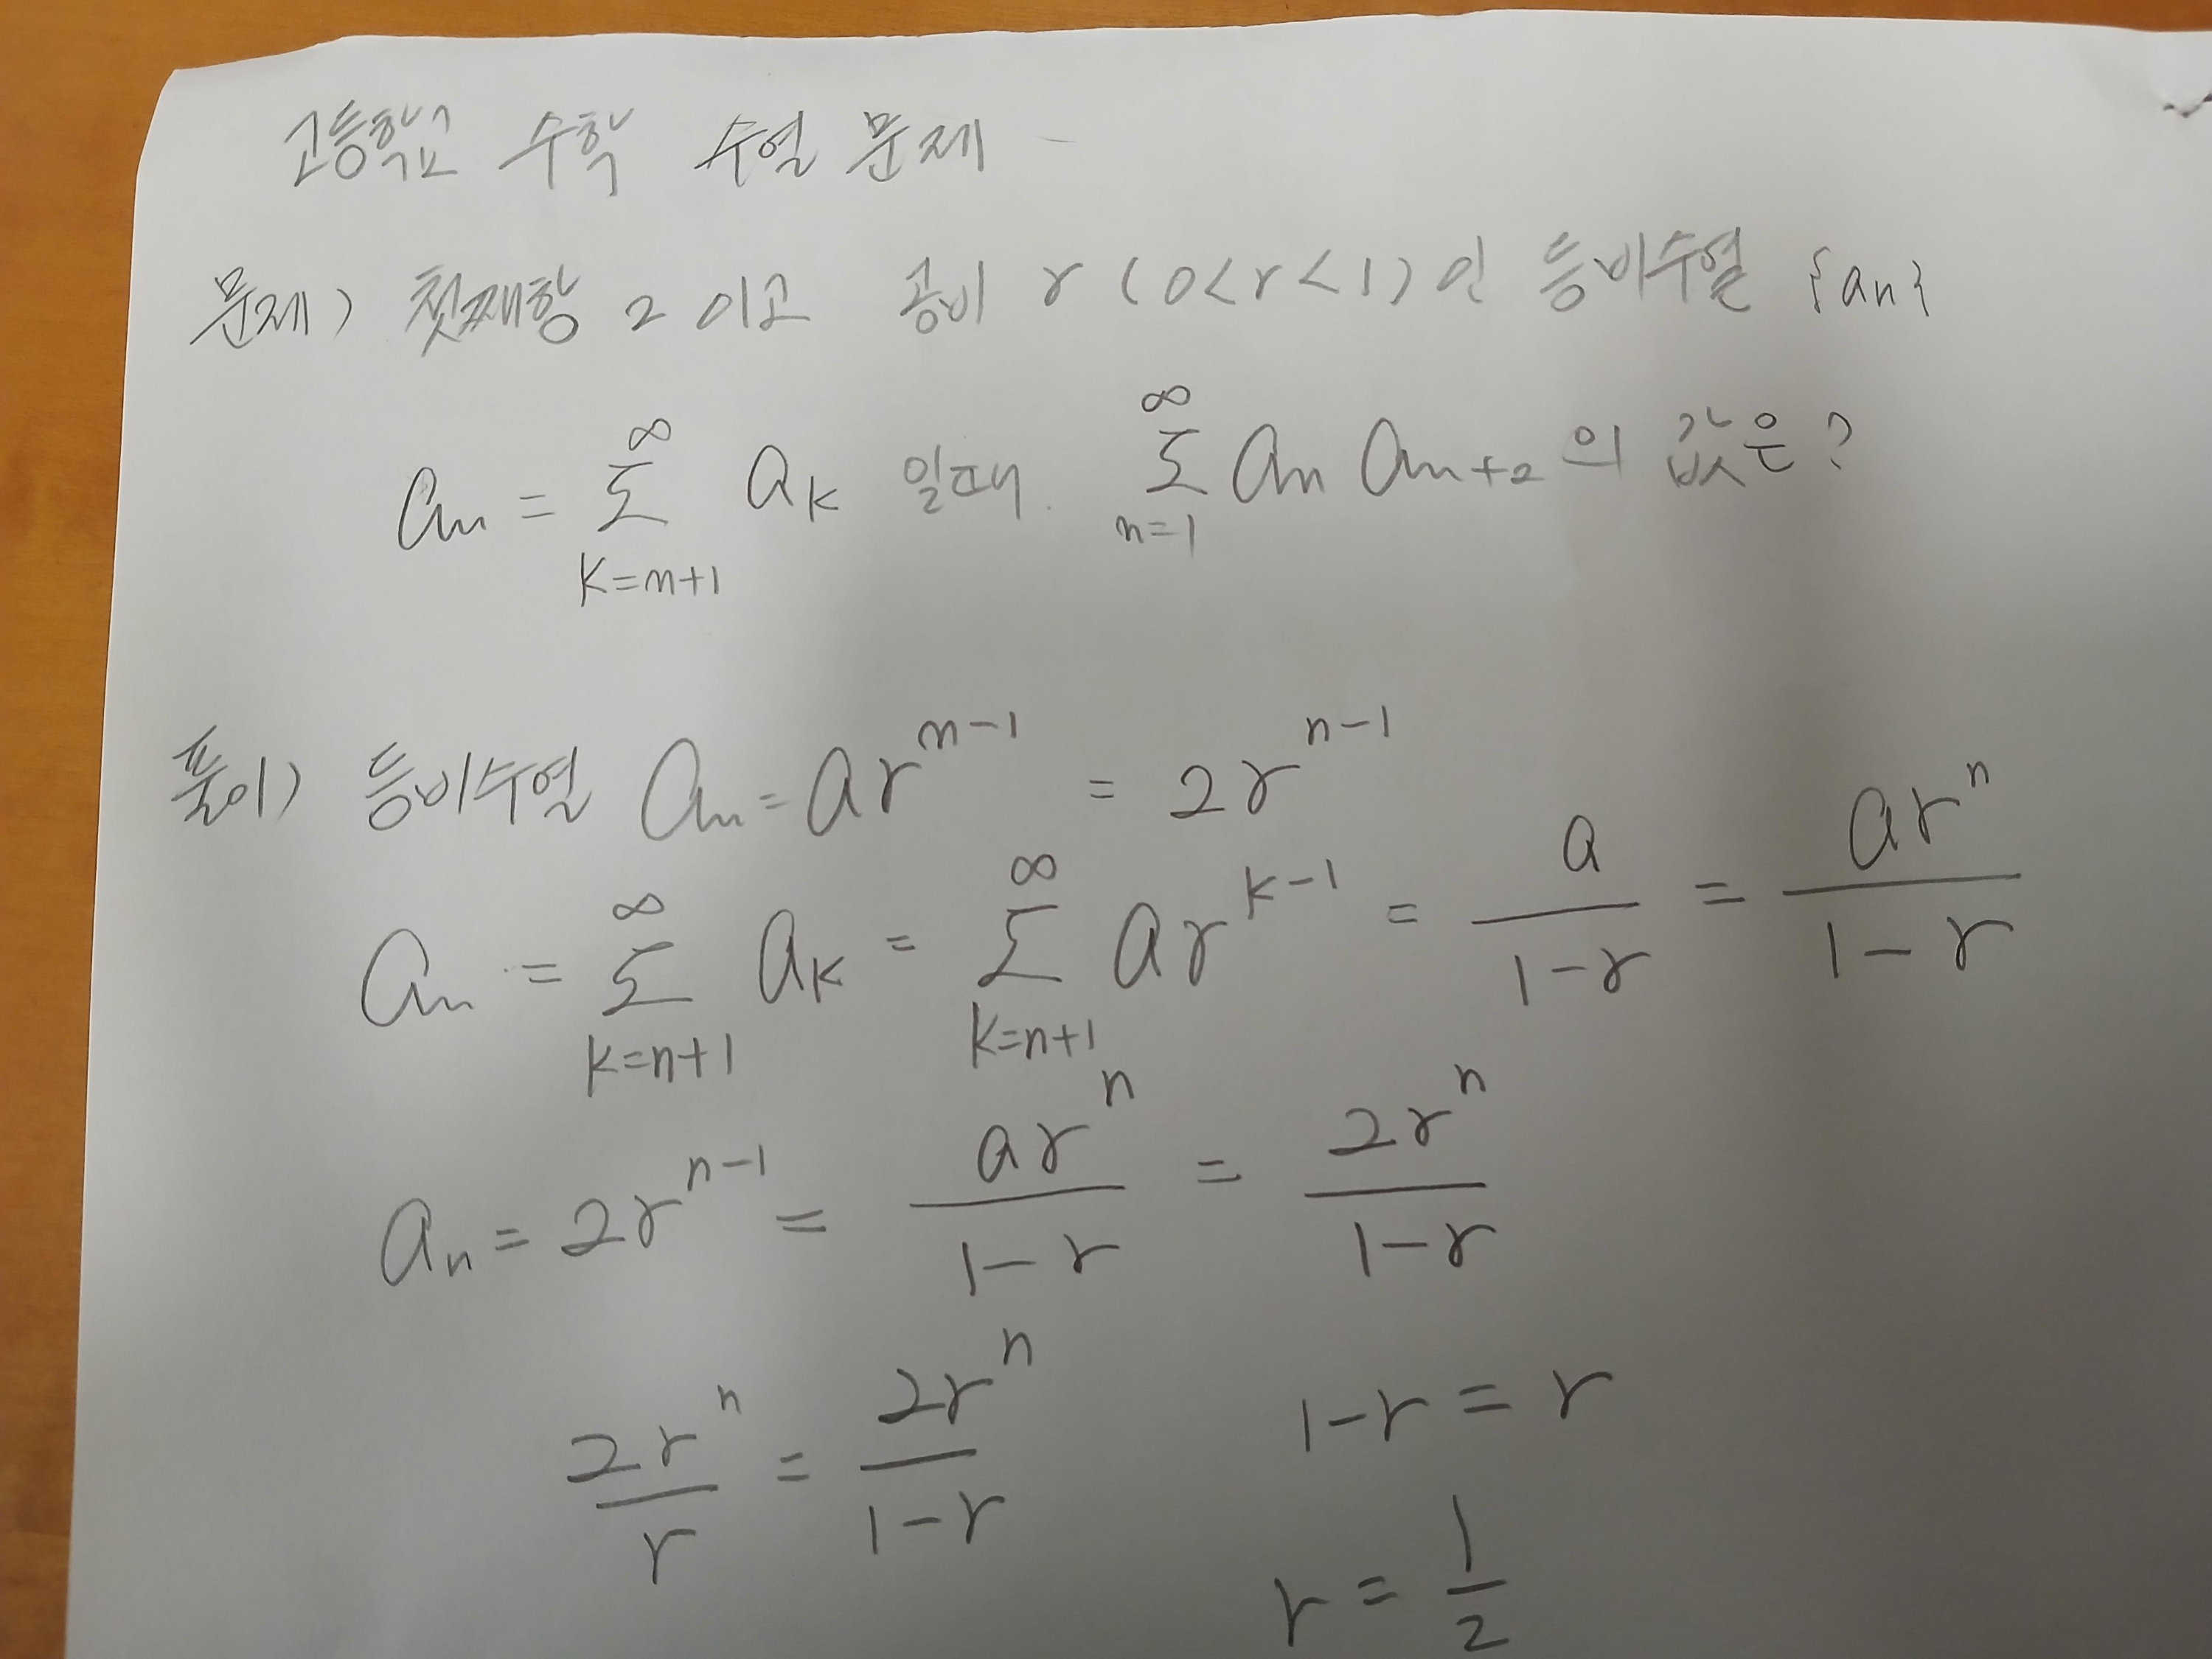 고등학교 수학 수열 문제
문제) 첫째항 2 이고 공비 r (0<r<1)인 등비수열 {an}
an = ∞∑k=n+1 ak 일때. ∞∑n=1 an an+2 의 값은?
풀이) 등비수열 an = ar^n-1 = 2r^n-1
an = ∞∑k=n+1 ak = ∞∑k=n+1 ar^k-1 = a/1-r = ar^n/1-r
an = 2r^n-1 = ar^n/1-r = 2r^n/1-r
2r^n/r = 2r^n/1-r 1-r = r
r = 1/2